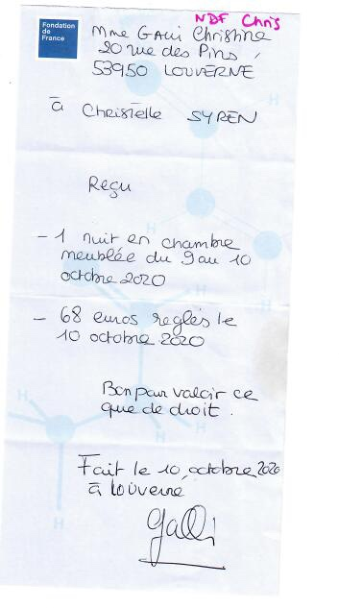 NDF Chris
Fondation
de
France
Mme Galli Christine
20 rue des Pins,
53950 LOUVERNE
à Christelle SYREN
Reçu
- 1 nuit en chambre
meublée du 9 au 10
octobre 2020
- 68 euros reglés le
10 octobre 2020
Bon pour valoir ce
que de droit.
Fait le 10 octobre 2020
à Louverne
Galli